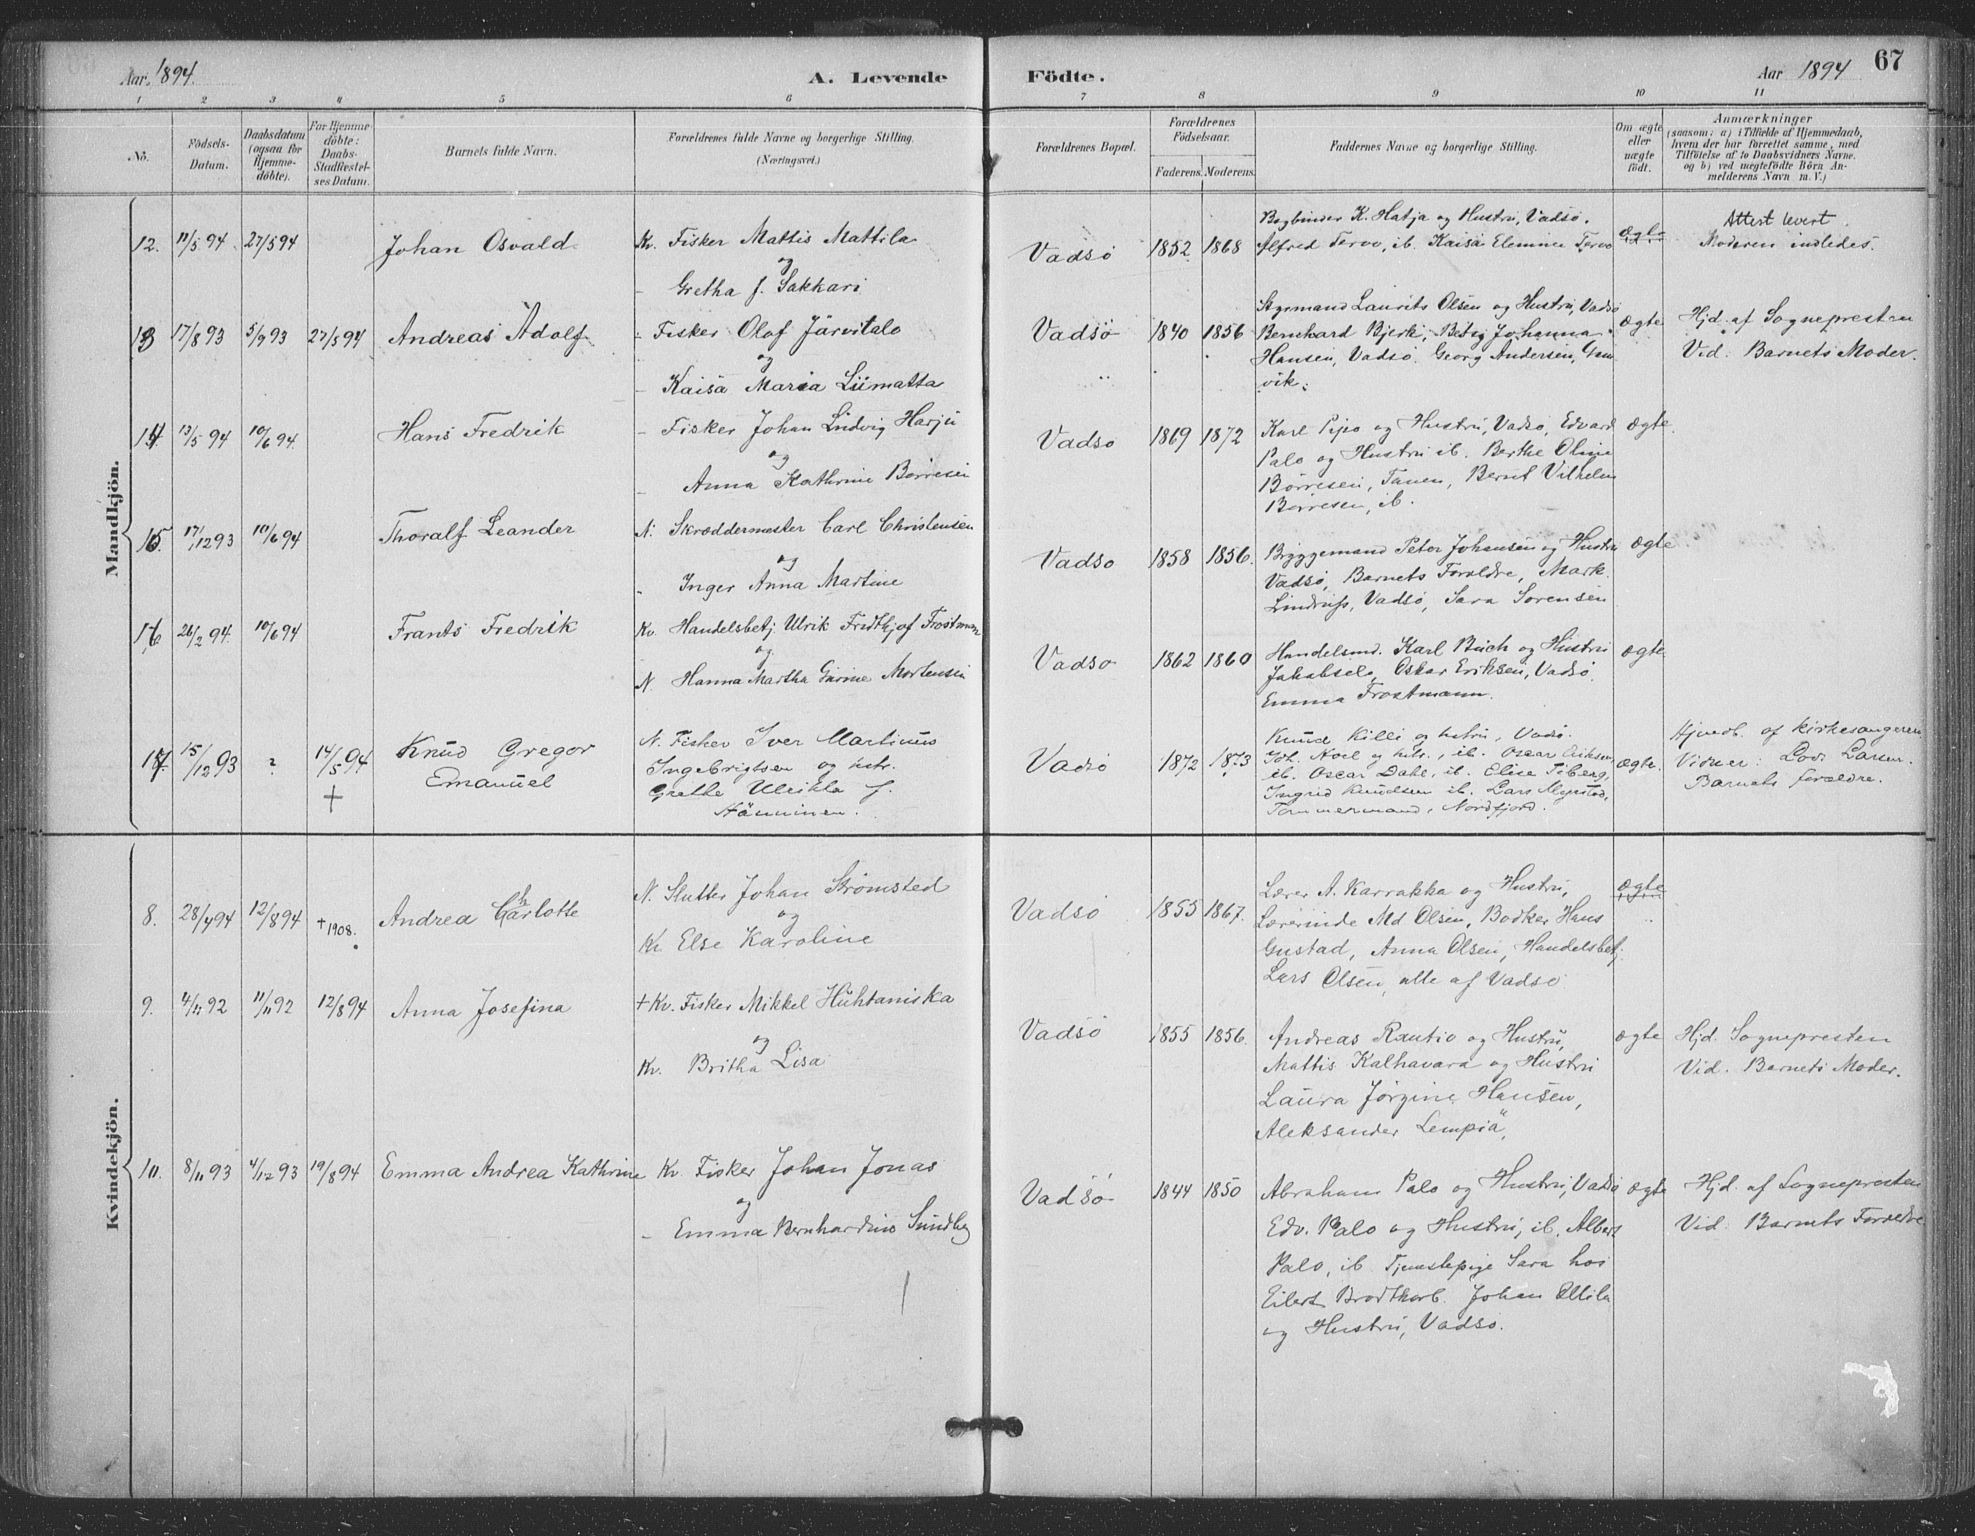 Aar 1894. A. Levende Födte. Aar 1894 67
1 2 3 4 5 6 7 8 9 10 11
No.
Födsels-
Datum.
Daabsdatum
(ogsaa for
Hjemme-
döbte).
For Hjemme-
döbte:
Daabs-
Stadfæstel-
ses Datum.
Barnets fulde Navn.
Forældrenes fulde Navne og borgerlige Stilling.
(Næringsvei.)
Forældrenes Bopæl.
Forældrenes
Födselsaar.
Faderens. Moderens.
Faddernes Navne og borgerlige Stilling.
Om ægte
eller
uægte
födt.
Anmærkninger
(saasom: a) i Tilfælde af Hjemmedaab,
hvem der har forrettet samme, med
Tilföielse af to Daabsvidners Navne.
og b) ved uegtefödte Börn An-
melderens Navn m. V.)
Mandkjön.
12. 11/5 94 27/5 94 Johan Osvald
Kv. Fisker Mattis Mattila
og
- Gretha f. Sakkari
Vadsö 1852. 1868
Bogbinder K. Hatja og Hustru, Vadsø.
Alfred Tervo, ib. Kaisa Elemine Tervo
ægte
Attest levert.
Moderen indledes.
13 17/8 93 5/9 93 27/5 94 Andreas Adolf
- Fisker Olof Järvitalo
og
- Kaisa Maria Liimatta
Vadsö 1840 1856
Styrmand Laurits Olsen og Hustru, Vadsø
Bernhard Bjerk, Betsy Johanna
Hansen, Vadsø. Georg Andersen, Gam-
vik.
ægte
Hjd. af Sognepresten
Vid: Barnets Moder.
14. 13/5 94 10/6 94 Hans Fredrik
- Fisker Johan Ludvig Harju
og
- Anna Kathrine Børresen
Vadsø 1869 1872
Karl Pipo og Hustru, Vadsø, Edvard
Palo og Hustru ib. Berthe Oline
Børresen, Tanen, Bernt Vilhelm
Børresen, ib.
ægte.
15. 17/12 93 10/6 94 Thoralf Leander
N. Skræddermester Carl Christensen
og
- Inger Anna Martine
Vadsø 1858 1856.
Bryggemand Peter Johansen og Hustru
Vadsø, Barnets Forældre, Mark.
Vadsø, Sara Sørensen
ægte
16 26/2 94 10/6 94 Frants Fredrik
Kv. Handelsbetj. Ulrik Fridthjof Frostman
og
N. Hanna Martha Gurine Mortensen
Vadsø 1862 1860
Handelsmd. Karl Buch og Hustru
Jakobselv, Oskar Eriksen, Vadsø.
Emma Frostmann.
ægte
17. 15/12 93 ? 14/5 94 Knud Gregor
+ Emanuel
N. Fisker Iver Martinus
Ingebrigtsen og hstr.
Grethe Ulrikka f.
Hänninen.
Vadsø 1872 1873
Knud Killi og hstru, Vadsø.
Joh. og hstr., ib. Oscar Eriksen
ib. Oscar Dahl, ib. Elise
Ingrid Knudsen ib. Lars
Tømmermand, Nordfjord.
ægte.
Hjmdb. af Kirkesangeren
Vidner: Lod. Larsen.
Barnets forældre.
Kvindekjön.
8. 28/4 94 12/8 94 † 1908. Andrea Charlotte
N. Slutter Johan Strømsted
og
Kv. Else Karoline
Vadsø 1855 1867.
Lærer A. Karrakka og Hustru,
Lærerinde Md Olsen, Bødker Hans
Gustad, Anna Olsen, Handelsbetj.
Lars Olsen, alle af Vadsø
ægte
9. 4/11 92 11/11 92 12/8 94 Anna Josefina
+ Kv. Fisker Mikkel Huhtaniska
og
Kv. Britha Lisa
Vadsö 1855 1856.
Andreas Rautio og Hustru,
Mattis Kalhavara og Hustru
Laura Jørgine Hansen,
Aleksander Lempiä,
ægte
Hjd. Sognepresten
Vid. Barnets Moder.
10. 8/11 93 4/12 93 19/8 94 Emma Andrea Kathrine
Kv. Fisker Johan Jonas
og
- Emma Bernhardine Sundbg
Vadsø 1844 1850
Abraham Palo og Hustru, Vadsø
Edv. Palo og Hustru, ib. Albert
Palo, ib. Tjenestepige Sara hos
Eilert Brodtkorb. Johan Ollila
og Hustru, Vadsø.
ægte
Hjd. af Sognepresten
Vid: Barnets Forældre